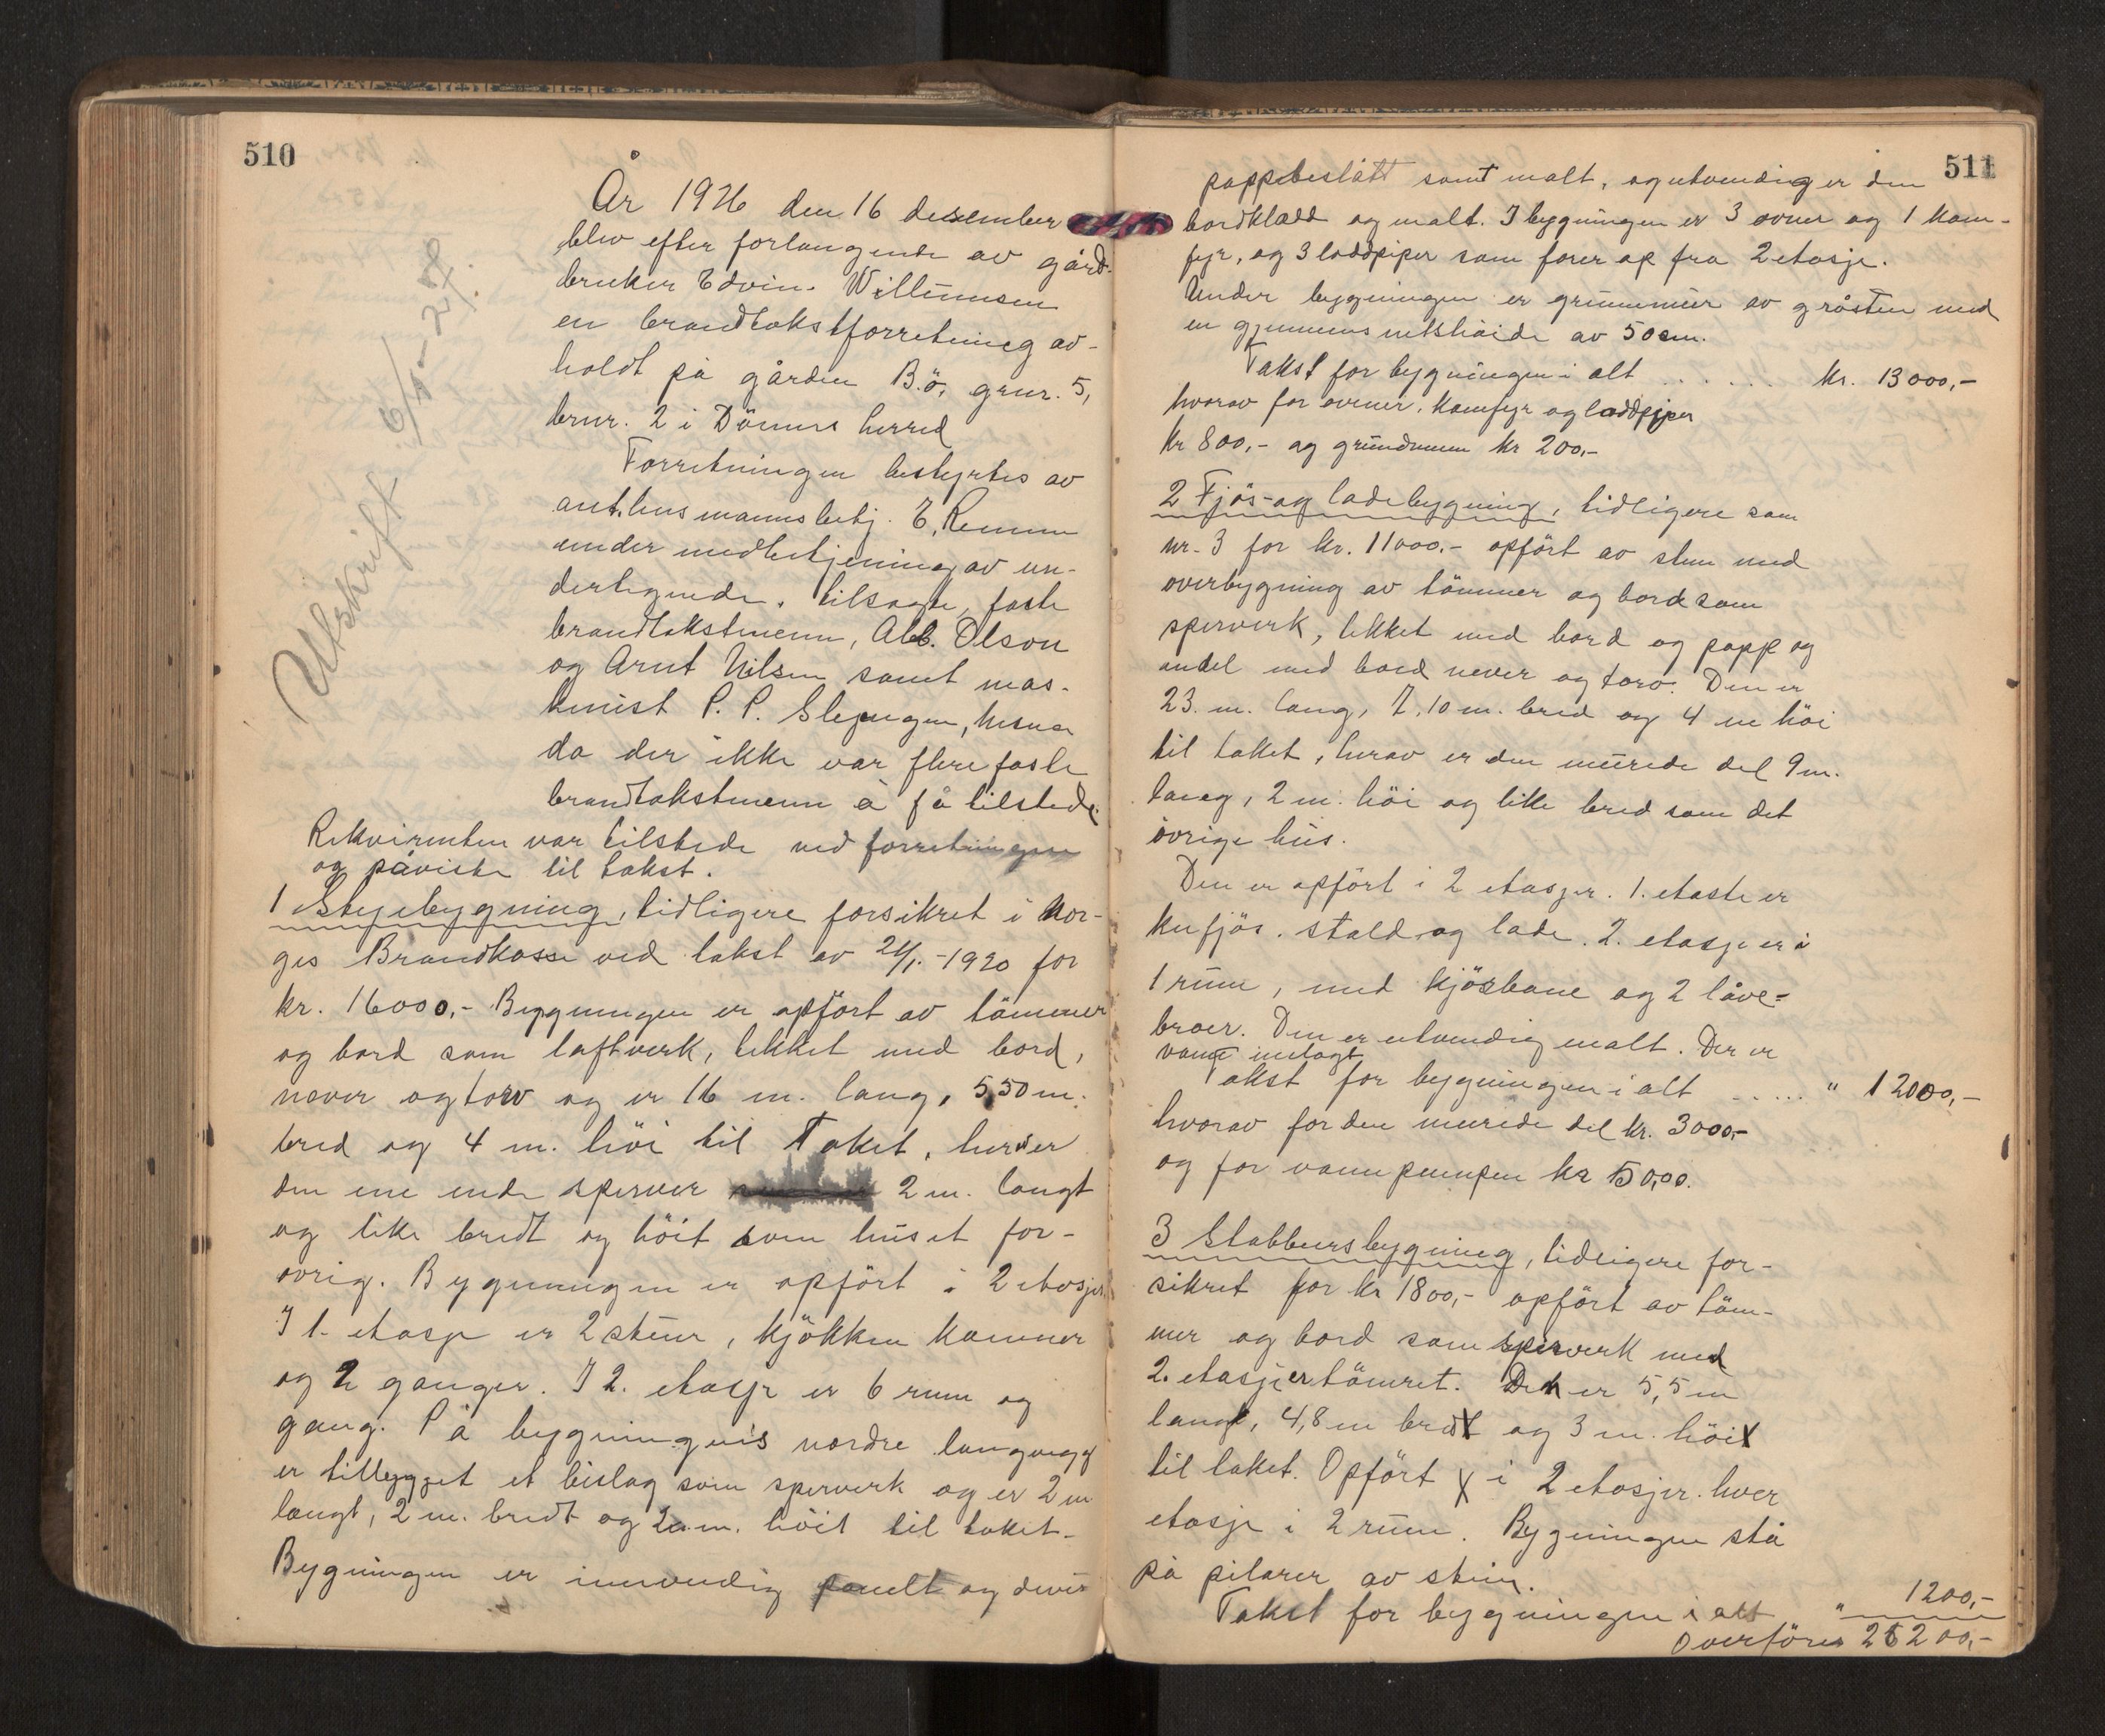 510
År 1926 den 16 desember
blev efter forlangende av gård-
bruker Edvin Willumsen
en brandtakstforretning av-
holdt på gården Bö, grnr. 5,
brnr. 2 i Dönnes herred
Forretningen bestyrtes av
ant. lensmannsbetj. E. Remmen
under medbetjening av un-
dertegnede, tilsagte, faste
brandtakstmenn, Alb. Olson
og Arnt Nilsen samt mas-
kinist P. P.
da der ikke var flere faste
brandtakstmenn å få tilstede.
Rekvirenten var tilstede ved forretningen
og påviste til takst.
Utskrift 6/1-27.
1 Stuebygning, tidligere forsikret i Nor-
ges Brandkasse ved takst av 21/1.-1920 for
kr. 16000,- Bygningen er opfört av tömmer
og bord som laftverk, tekket med bord,
never og torv og er 16 m. lang, 5,50 m.
bred og 4 m. höi til Taket, herav er
den ene ende sperver 2 m. langt
og like bredt og höit som huset for-
övrig. Bygningen er opfört i 2 etasjer.
I 1. etasje er 2 stuer, kjökken kammer
og 2 ganger. I 2. etasje er 6 rum og
gang. På bygningens nordre langvegg
er tilbygget et bislag som sperverk og er 2 m
langt, 2 m. bredt og 2 m. höit til taket.
Bygningen er innvendig panelt og
511
pappbeslått samt malt, og utvendig er den
bordklædd og malt. I bygningen er 3 ovner og 1 kom-
fyr, og 3 loddpiper som förer op fra 2 etasje.
Under bygningen er grunnmur av gråsten med
en gjennemsnitshöide av 50 cm.
Takst for bygningen i alt . . . . . . kr. 13000,-
hvorav for ovner, komfyr og loddpiper
kr 800,- og grundmuren kr 200,-
2 Fjös- og ladebygning, tidligere som
nr. 3 for kr. 11000.- opfört av sten med
overbygning av tömmer og bord som
sperverk, tekket med bord og papp og
endel med bord never og torv. Den er
23. m. lang, 7,10 m. bred og 4 m höi
til taket, herav er den murede del 9 m.
lang, 2 m. höi og like bred som det
övrige hus.
Den er opfört i 2 etasjer. 1. etaste er
kufjös. stald og lade. 2. etasje er i
1 rum, med kjörbane og 2 låve-
broer. Den er utvendig malt. Der er
vann innlagt
Takst for bygningen i alt ..... " 12000,-
hvorav for den murede del kr. 3000,-
og for vannpumpen kr 50,00.
3 Stabbursbygning, tidligere for-
sikret for kr 1800,- opfört av töm-
mer og bord som sperverk med
2. etasje er tömret. Den er 5,5 m
lang, 4,8 m bred og 3 m. höi
til taket. Opfört i 2 etasjer. hver
etasje i 2 rum. Bygningen stå
på pilarer av sten.
Takst for bygningen i alt " 1200,-
Overföres 26200,-